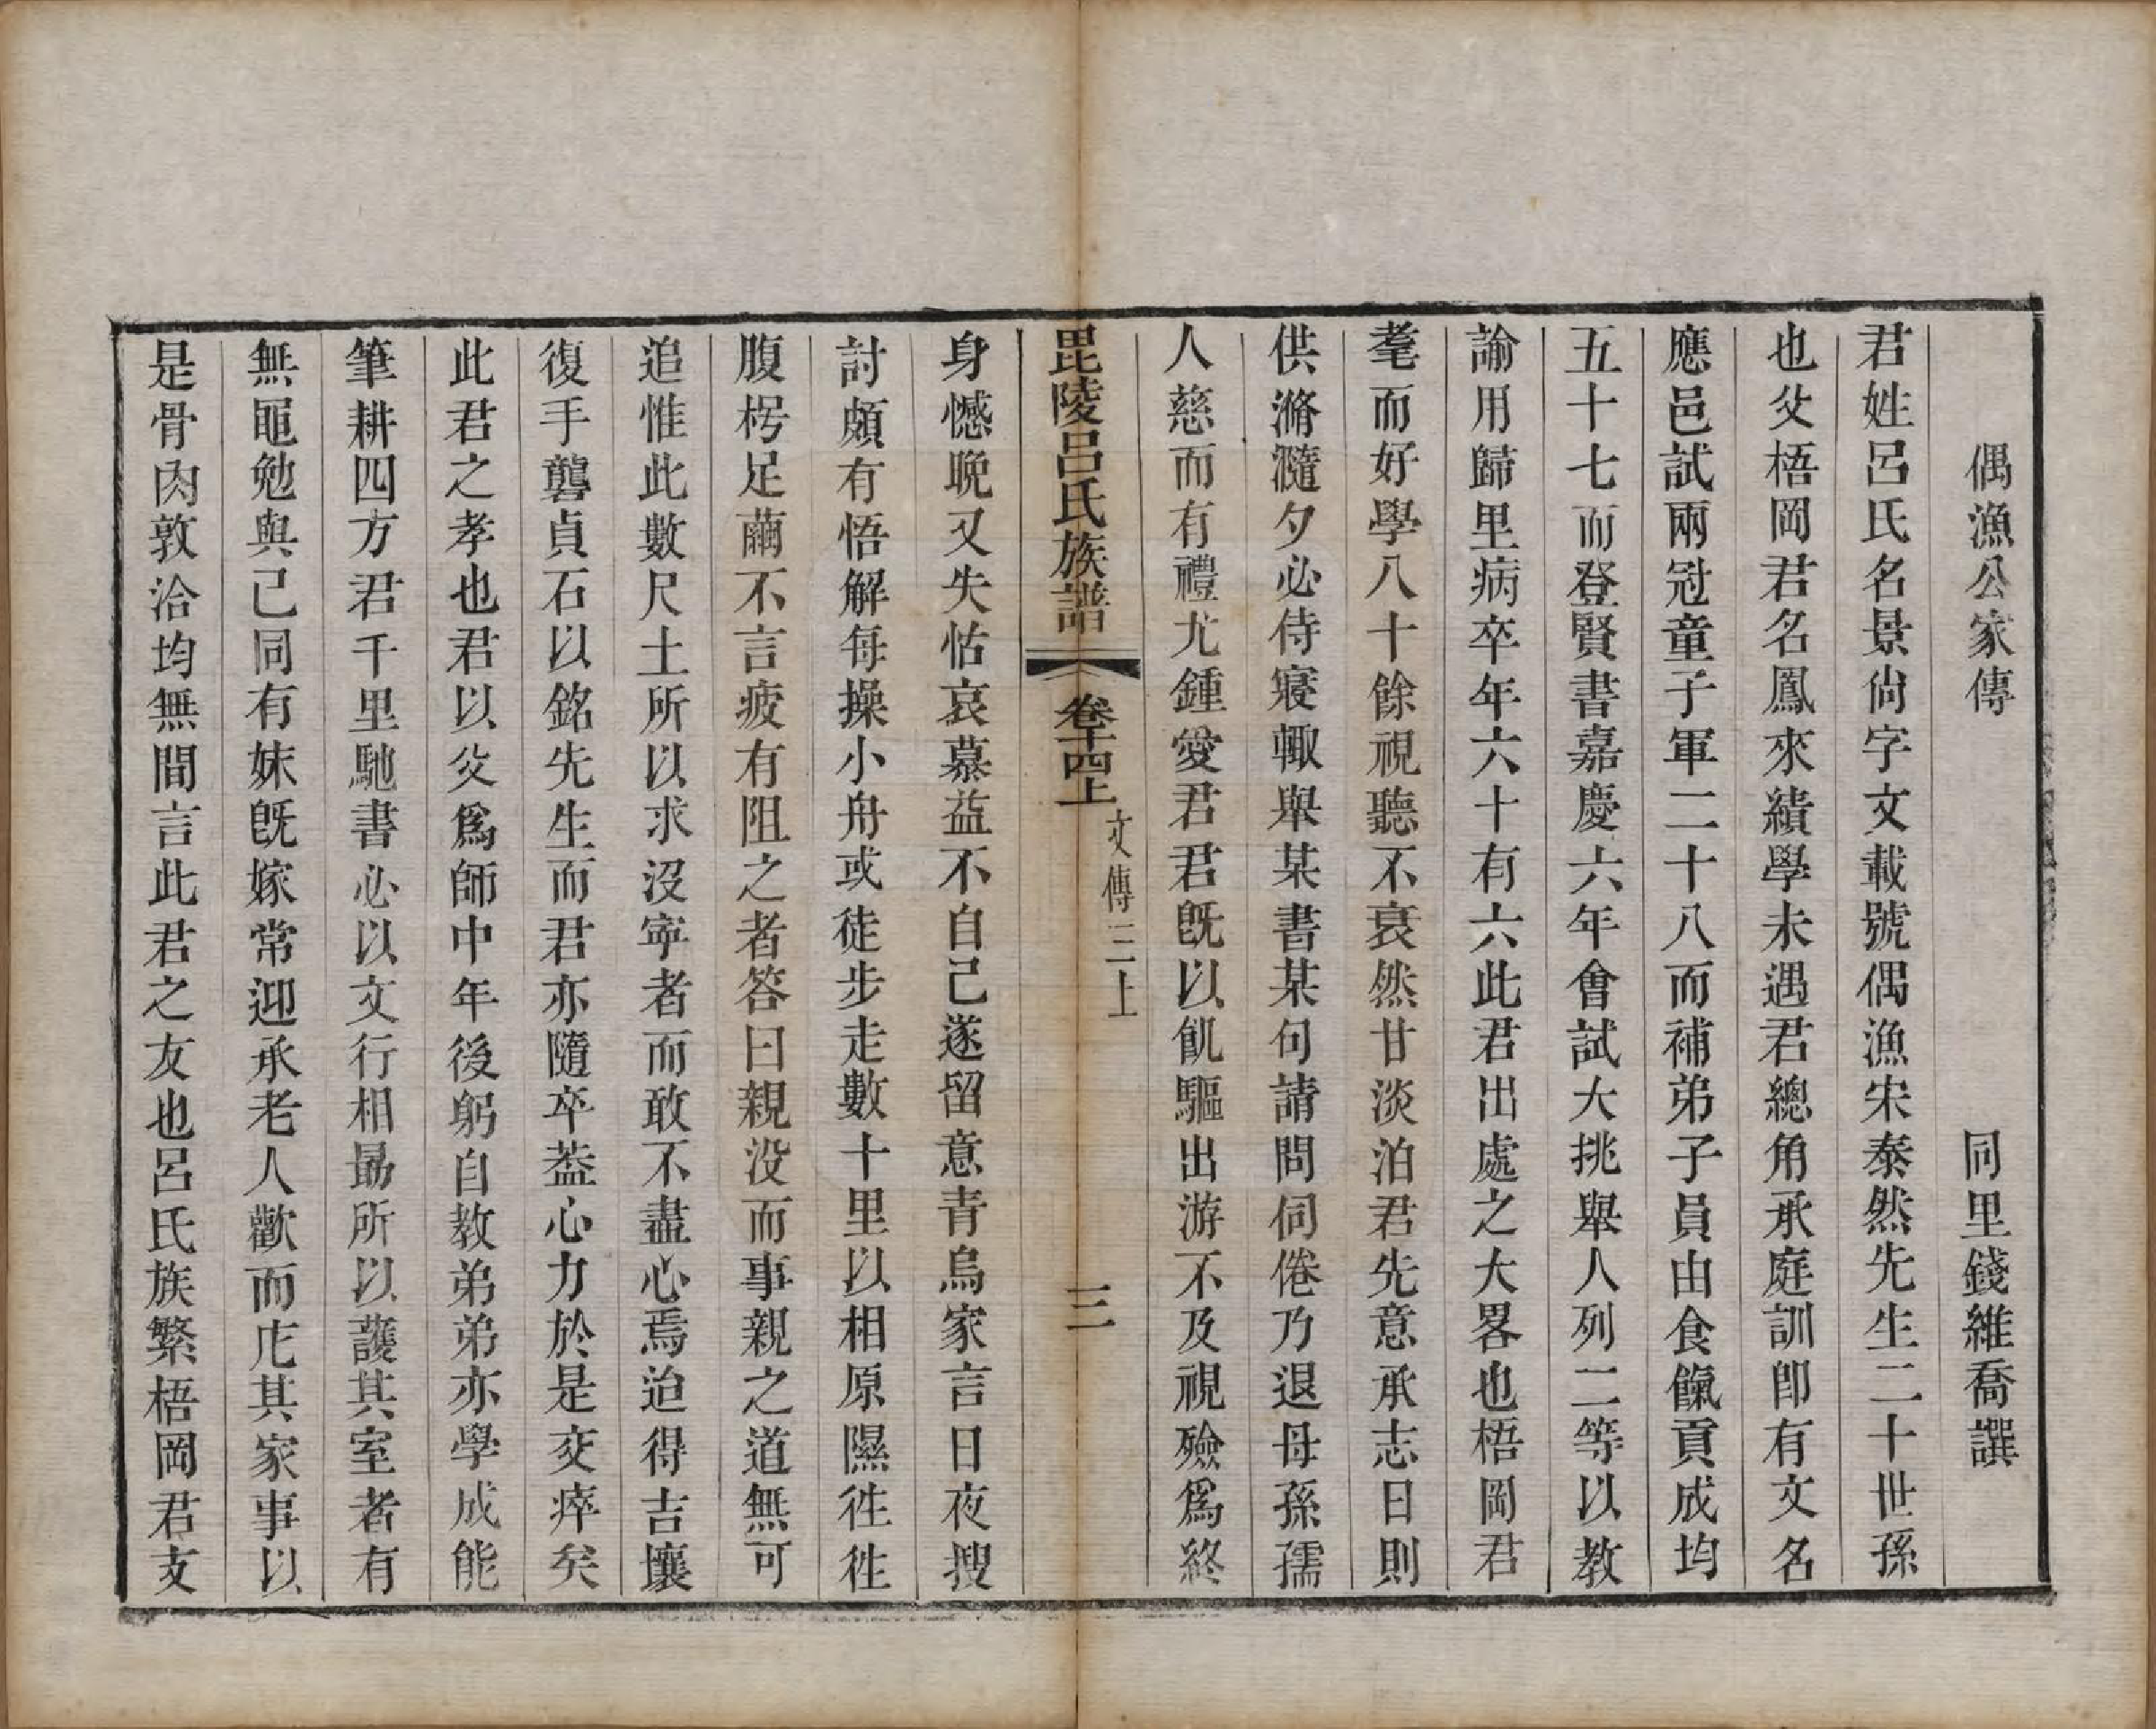 偶漁公家傳　同里錢維喬譔
君姓呂氏名景尙字文載號偶漁宋泰然先生二十世孫
也父梧岡君名鳳來績學未遇君總角承庭訓卽有文名
應邑試兩冠童子軍二十八而補弟子員由食餼貢成均
五十七而登賢書嘉慶六年會試大挑舉人列二等以教
諭用歸里病卒年六十有六此君出處之大畧也梧岡君
耄而好學八十餘視聽不衰然甘淡泊君先意承志日則
供滫瀡夕必侍寢輙舉某書某句請問伺倦乃退母孫孺
人慈而有禮尤鍾愛君君旣以飢驅出游不及視殮爲終
毘陵呂氏族譜　卷十四上　文傳三上　三
身憾晚又失怙哀慕益不自己遂留意青烏家言日夜搜
討頗有悟解每操小舟或徒步走數十里以相原隰往往
腹枵足繭不言疲有阻之者答曰親没而事親之道無可
追惟此數尺土所以求沒寧者而敢不盡心焉迨得吉壤
復手礱貞石以銘先生而君亦隨卒葢心力於是交瘁矣
此君之孝也君以父爲師中年後躬自教弟弟亦學成能
筆耕四方君千里馳書必以文行相勗所以護其室者有
無黽勉與己同有妹旣嫁常迎承老人歡而庀其家事以
是骨肉敦洽均無間言此君之友也呂氏族繁梧岡君支